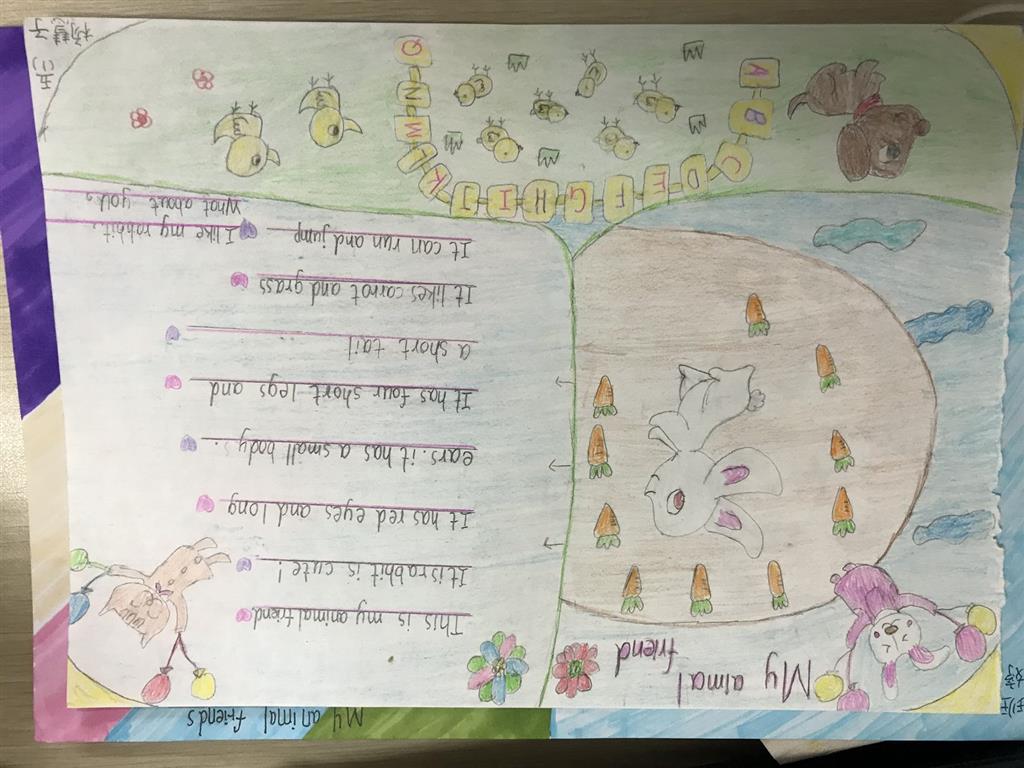 My aimal
friend
This is my animal friend
It is rabbit is cute!
It has red eyes and long
ears. it has a small body.
It has four short legs and
a short tail
It likes carrot and grass
It can run and jump
I like my rabbit.
What about you?
A B C D E F G H I J K L M N Q
五(1)
杨慧子
My animal friends